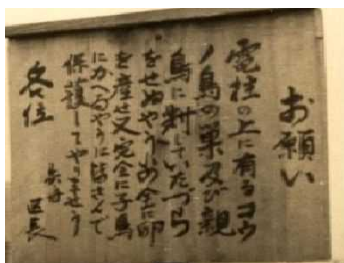 お願い
電柱の上に有るコウ
ノ鳥の巣及び親
鳥に対していたづら
をせぬやうお全に卵
を産せ又完全に子鳥
にかへるやうに皆さんで
保護してやりませう
各位
区長